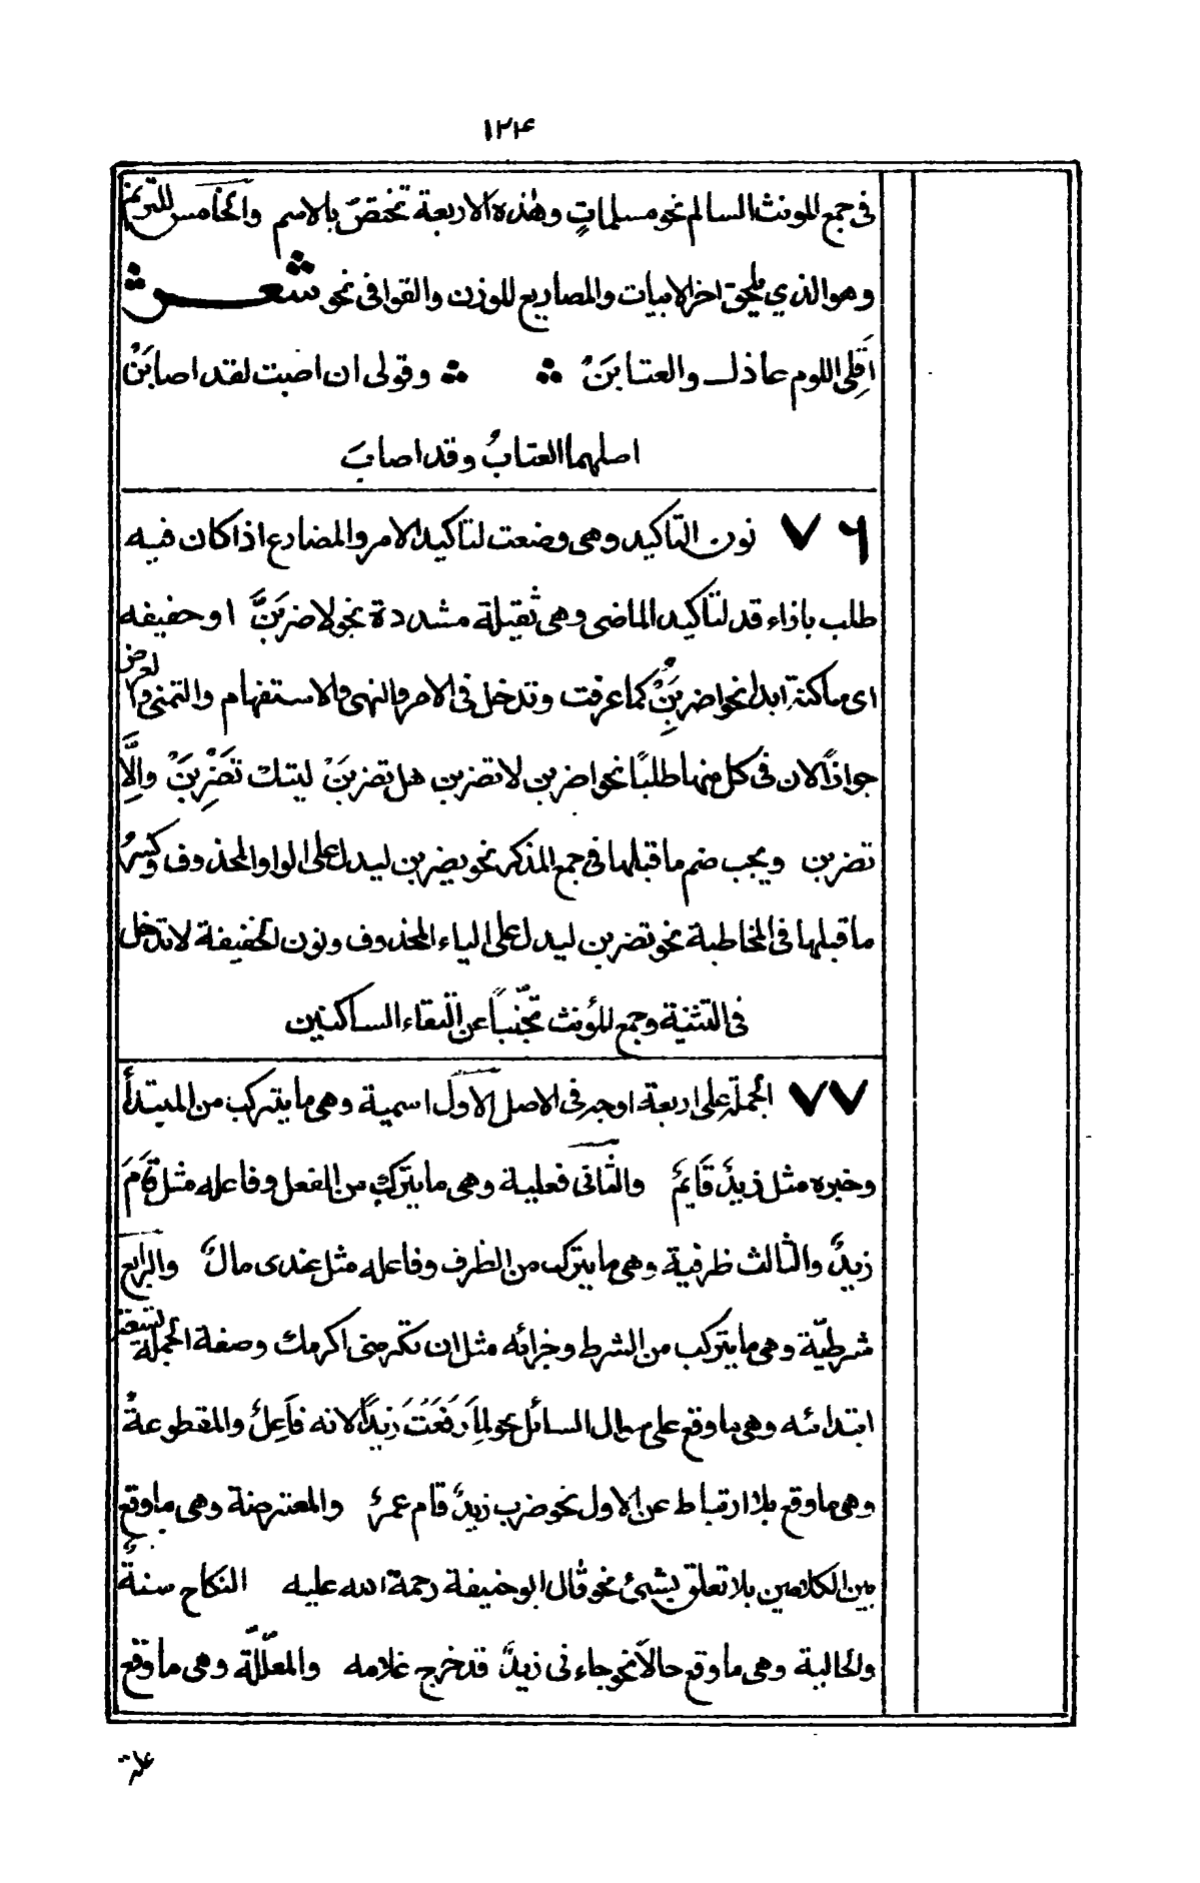 ١٢٤
فى جمع المونث السالم نحو مسلماتٍ وهذه الاربعة تختصّ بالاسم والخامس للترنم
وهو الذي يلحق اخر الابيات والمصاريع للوزن والقوافى نحو شعر
اَقِلِّى اللوم عاذل والعتابَنْ وقولى ان اصبت لقد اصابَنْ
اصلهما العتابُ وقد اصابَ
٧٦ نون التاكيد وهى وضعت لتاكيد الامر والمضارع اذا كان فيه
طلب باذاء قد لتاكيد الماضى وهى ثقيلة مشددة نحو لاضربَنَّ او خفيفه
اى ساكنة ابدا نحو اضربَنْ كما عرفت وتدخل فى الامر والنهى والاستفهام والتمنى والعرض
جوازًا لان فى كل منها طلبًا نحو اضربن لا تضربن هل تضربَنْ ليتك تضْرِبَنْ والَّا
تضربن ويجب ضم ما قبلها فى جمع المذكر نحو يضربن ليدل على الواو المحذوف وكسرُ
ما قبلها فى المخاطبة نحو تضربن ليدل على الياء المحذوف ونون الخفيفة لا تدخل
فى التثنية وجمع المؤنث تجنّباً عن التقاء الساكنين
٧٧ الجملة على اربعة اوجه فى الاصل الاول اسمية وهى ما يتركب من المبتدأ
وخبره مثل زيدٌ قَايمٌ والثانى فعلية وهى ما يتركب من الفعل وفاعله مثل قَامَ
زيدٌ والثالث ظرفية وهى ما يتركب من الظرف وفاعله مثل عندى مالٌ والرابع
شرطيّة وهى ما يتركب من الشرط وجزائه مثل ان تكرمنى اكرمك وصفة الجملة تسعة
ابتدائه وهى ما وقع على سوال السائل نحو لِمَ رَفَعْتَ زيدًا لانه فَاعِلٌ والمقطوعةُ
وهى ما وقع بلا ارتباط عن الاول نحو ضرب زيدٌ قام عمرٌ والمعترضة وهى ما وقع
بين الكلامين بلا تعلق بشئ نحو قال ابو حنيفة رحمة الله عليه النكاح سنةٌ
والحالية وهى ما وقع حالاً نحو جاءنى زيدٌ قد خرج غلامه والمعلّلة وهى ما وقع
علة